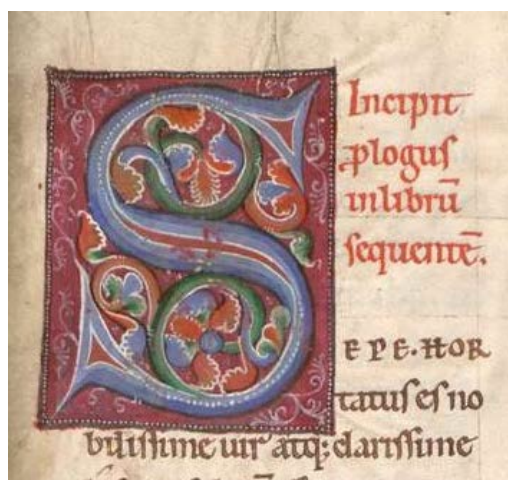 Incipit
plogus
in librū
sequentē.
S
EPE. HOR
tatus es no
bilissime uir atq; clarissime